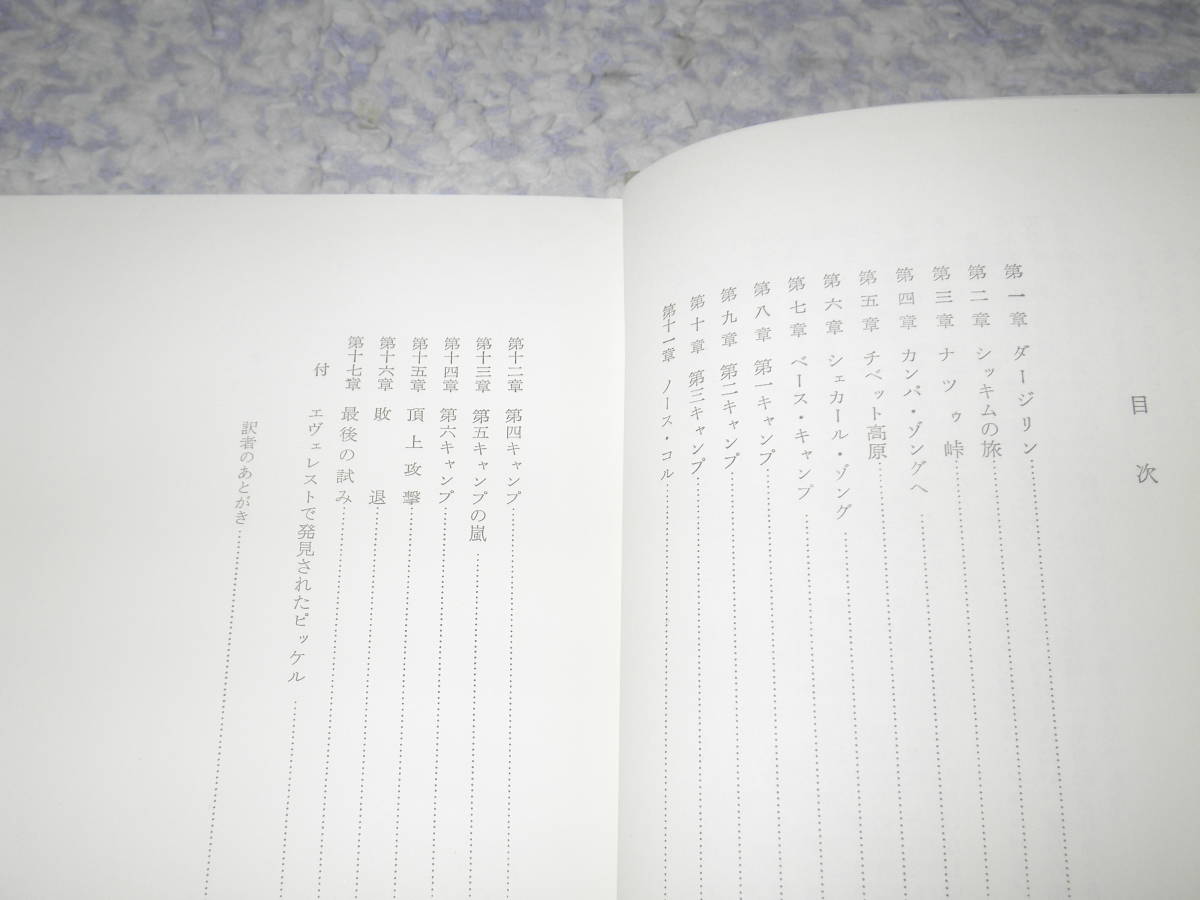 目次
第一章 ダージリン
第二章 シッキムの旅
第三章 ナツゥ峠
第四章 カンバ・ゾングへ
第五章 チベット高原
第六章 シェカール・ゾング
第七章 ベース・キャンプ
第八章 第一キャンプ
第九章 第二キャンプ
第十章 第三キャンプ
第十一章 ノース・コル
第十二章 第四キャンプ
第十三章 第五キャンプの嵐
第十四章 第六キャンプ
第十五章 頂上攻撃
第十六章 敗退
第十七章 最後の試み
付 エヴェレストで発見されたピッケル
訳者のあとがき